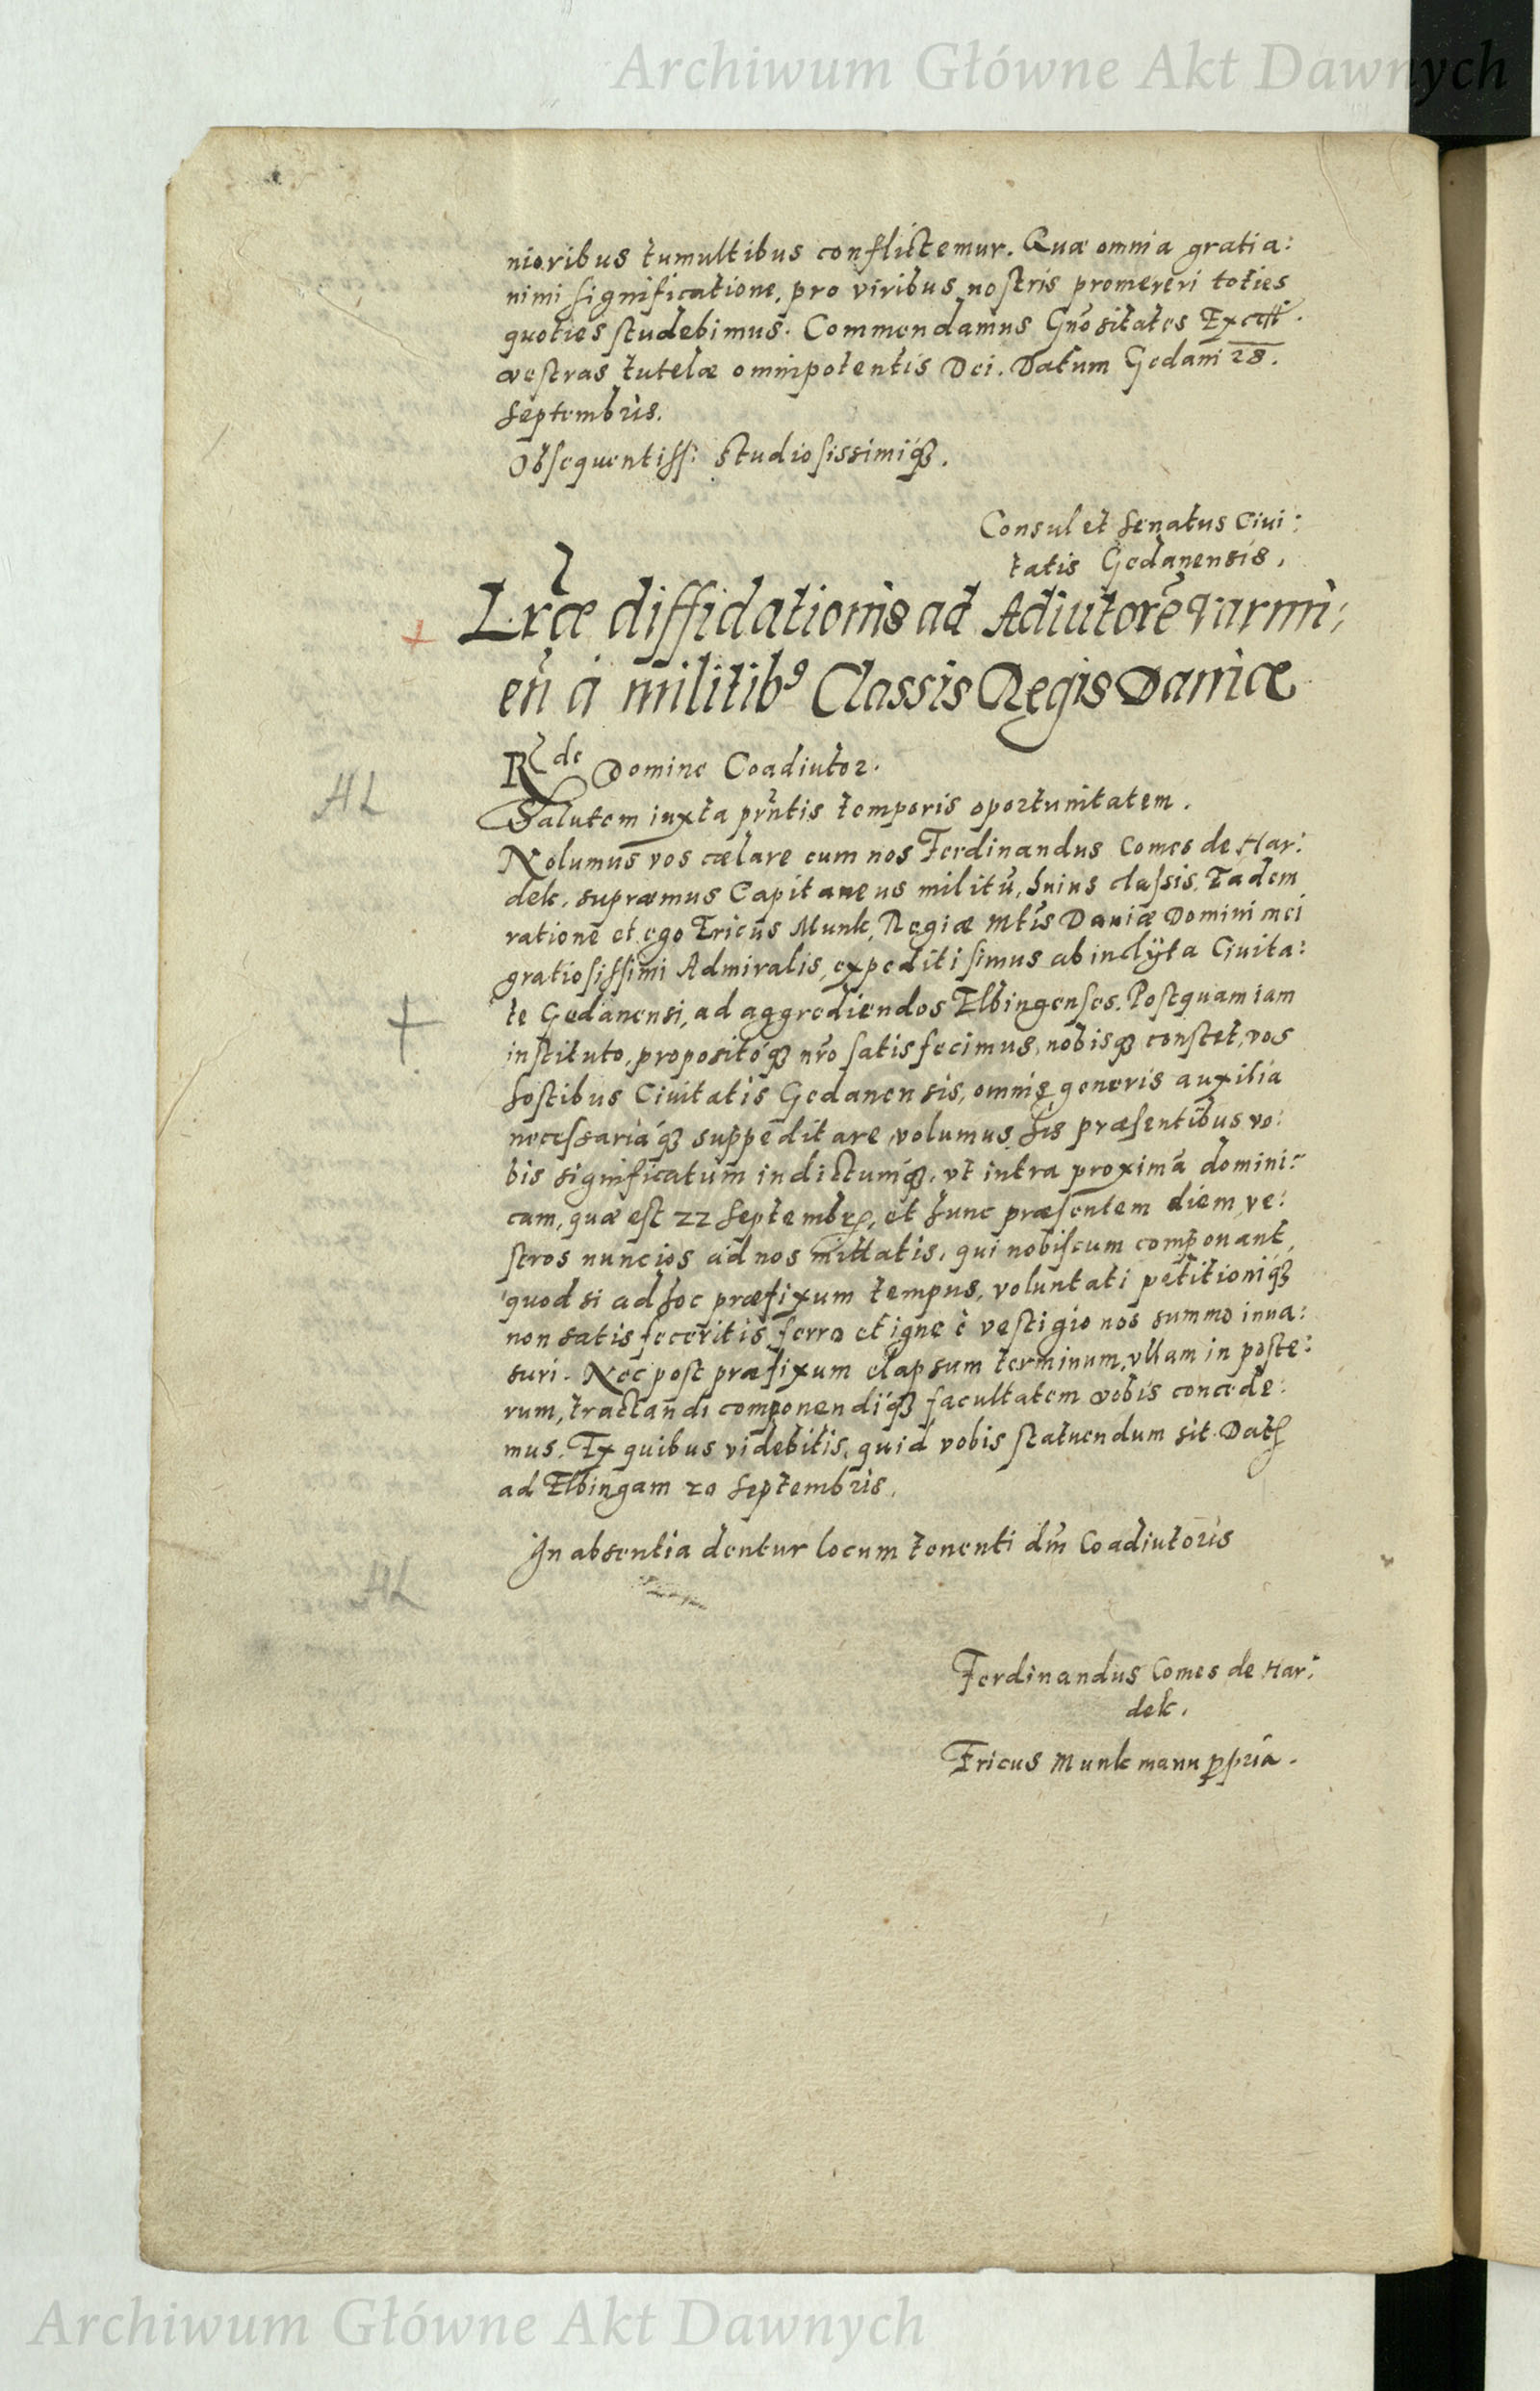 Archiwum Główne Akt Dawnych
nioribus tumultibus conflictemur. Quæ omnia grati a:
nimi significatione, pro viribus nostris promereri toties
quoties studebimus. Commendamus Gñositates Excell.
vestras tutelæ omnipotentis Dei. Datum Gedani 28.
Septembris.
Obsequentiss: studiosissimiq́ꝫ.
Consul et Senatus Ciui:
tatis Gedanensis.
Lr̃æ diffidationis ad Adiutorẽ varmi:
eñ à militibꝰ Classis Regis Daniæ
Rde Domine Coadiutor.
Salutem iuxta pr̃ntis temporis oportunitatem.
Nolumus vos cælare cum nos Ferdinandus Comes de Har:
dek, supræmus Capitaneus militũ, huius classis, Eadem
rationẽ et ego Ericus Munk, Regiæ Mtis Daniæ Domini mei
gratiosissimi Admiralis, expediti simus ab inclÿta Ciuita:
te Gedanensi, ad aggrediendos Elbingenses. Postquam iam
instituto, propositóq́ꝫ nr̃o satisfecimus, nobisqꝫ constet, vos
hostibus Ciuitatis Gedanensis, omnis generis auxilia
necessariáq́ꝫ suppeditare, volumus his præsentibus vo:
bis significatum indictumq́ꝫ, vt intra proximã domini:
cam, quæ est 22 Septembr, et hunc præsentem diem, ve:
stros nuncios ad nos mittatis, qui nobiscum componant,
quod si ad hoc præfixum tempus, voluntati petitioniq́ꝫ
non satis feceritis ferro et igne è vestigio nos summo inua:
suri. Nec post præfixum elapsum terminum, vllam in poste:
rum, tractandi componendiq́ꝫ facultatem vobis concede:
mus. Ex quibus videbitis, quid vobis statuendum sit. Dat
ad Elbingam 20 Septembris.
In absentia dentur locum tenenti dñi Coadiutoris
Ferdinandus Comes de Har:
dek.
Ericus Munk manu ꝓpria.
HL
HL
Archiwum Główne Akt Dawnych